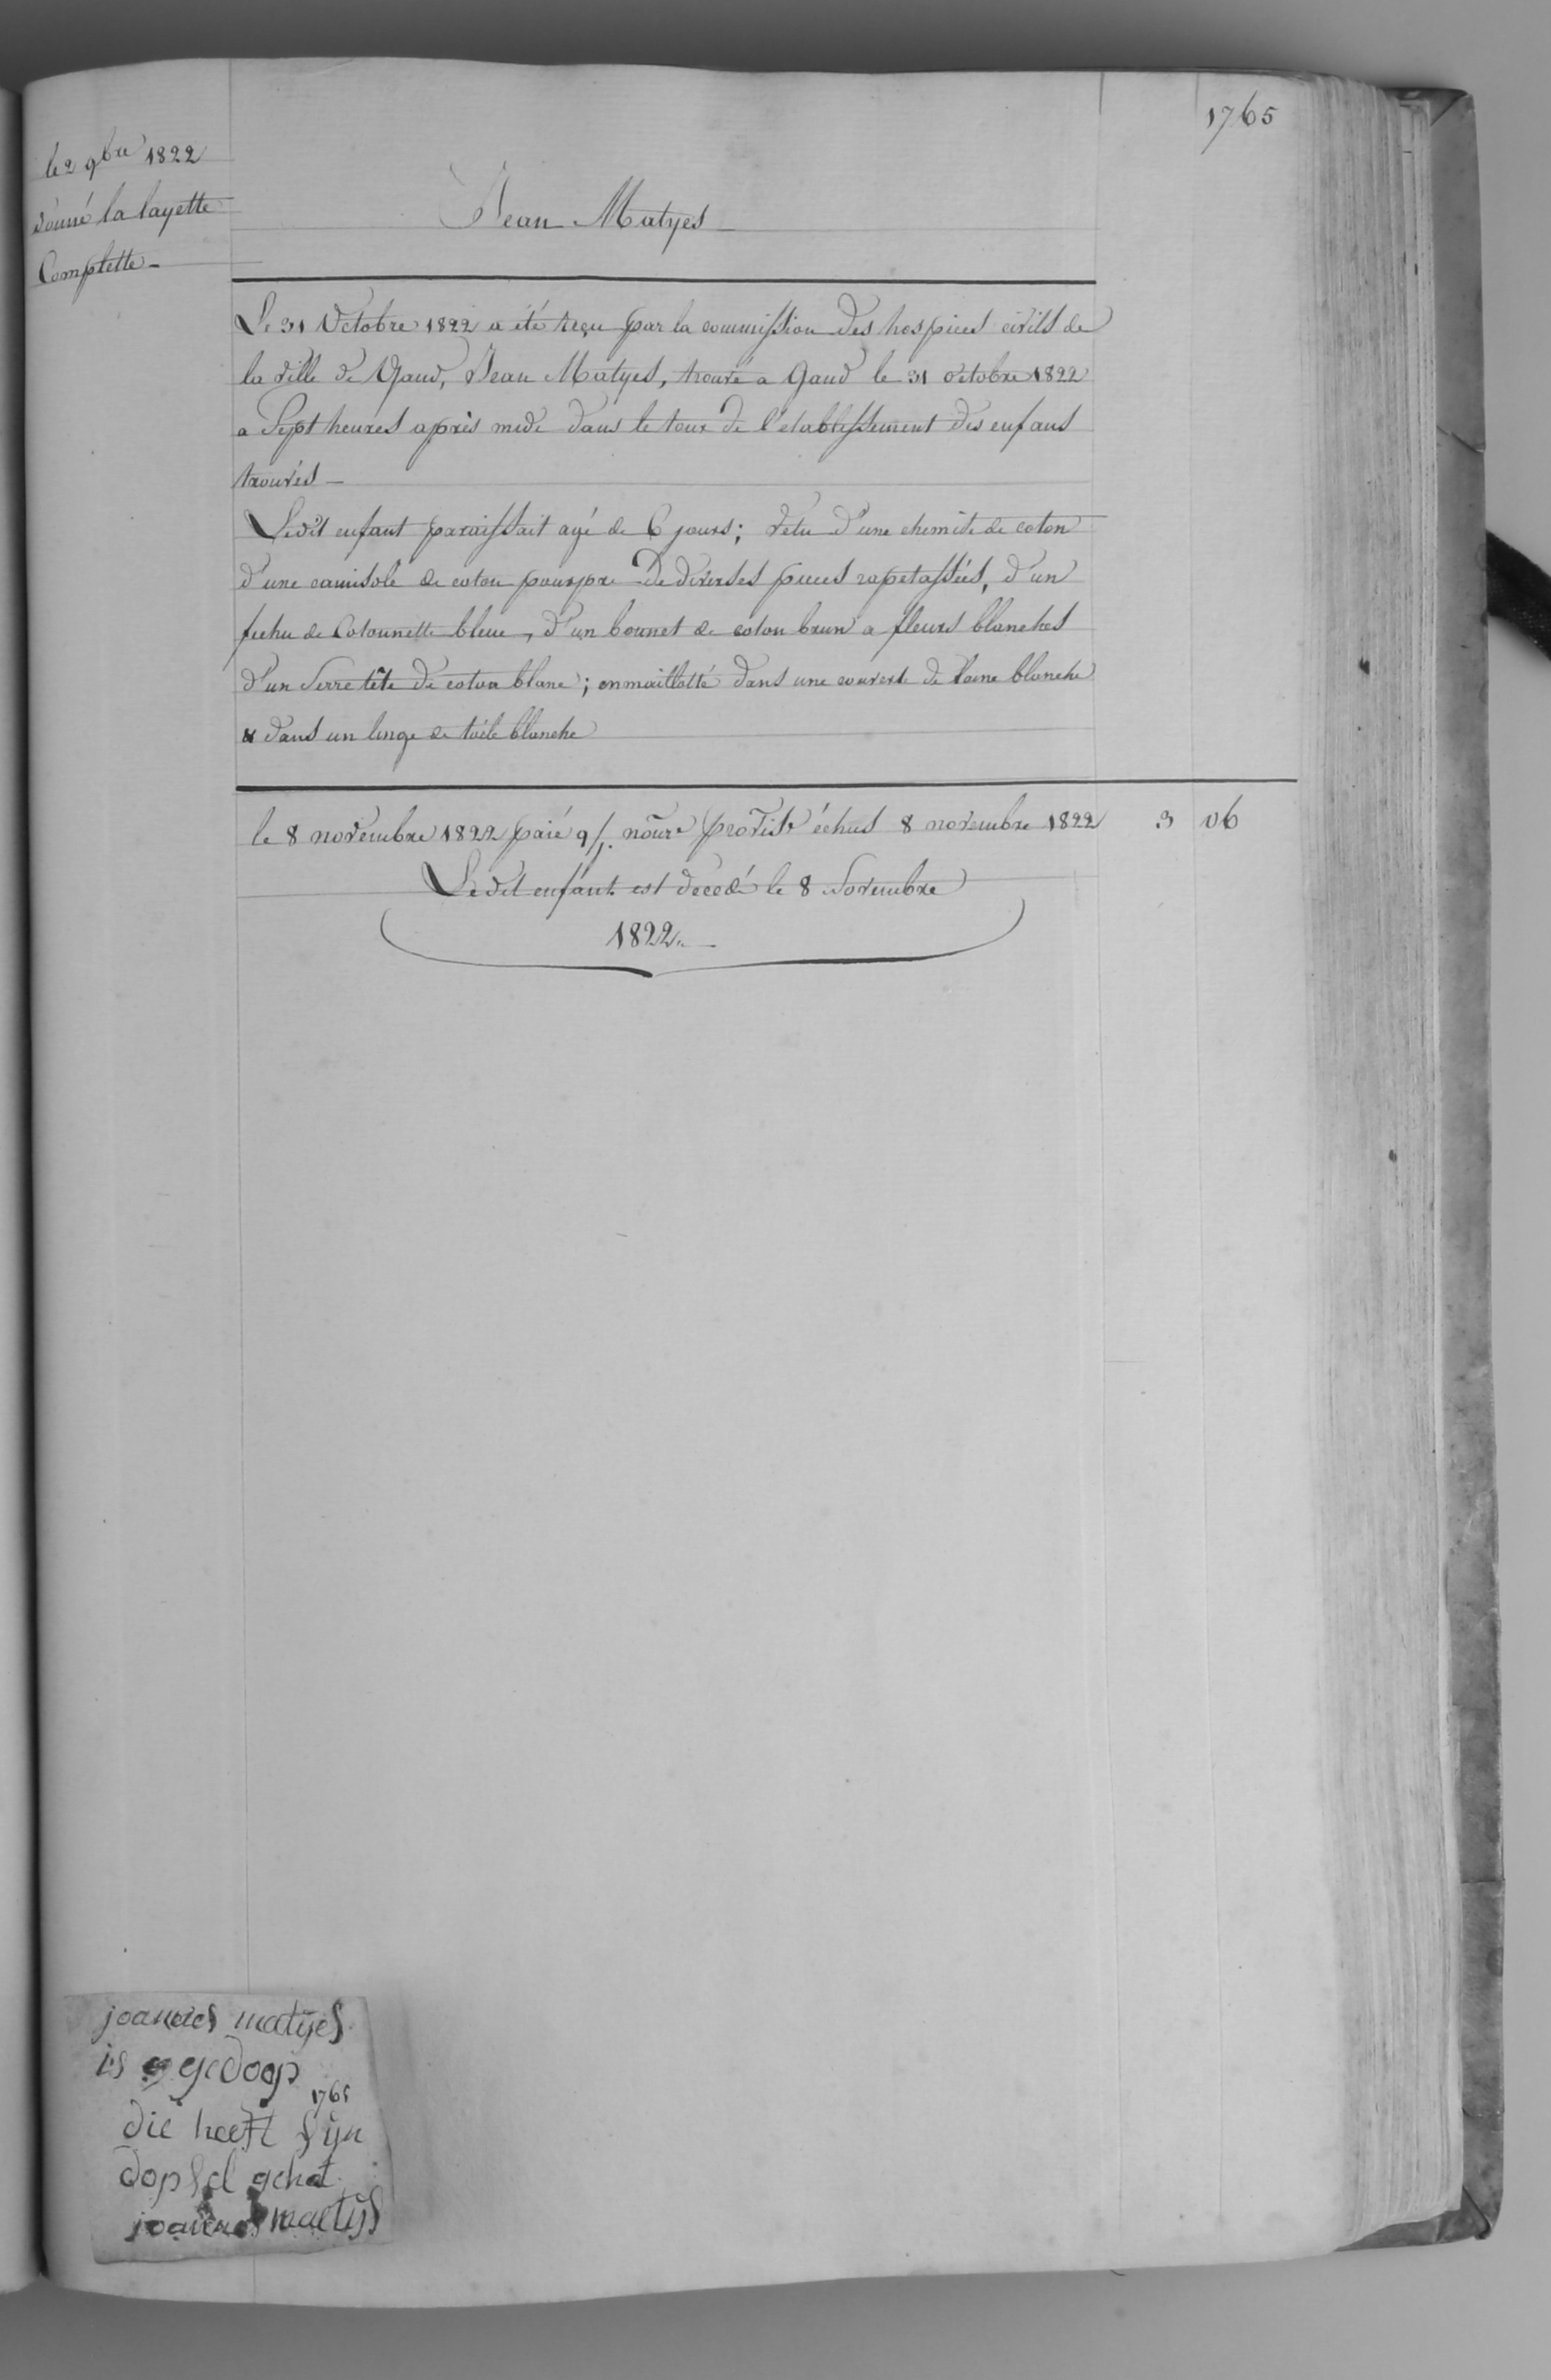 1765
le 2 9bre 1822
donné la layette
Complette -
Jean Matyes
Le 31 Octobre 1822 a été reçu par la commission des hospices civils de
la ville de Gand, Jean Matyes, trouvé a Gand le 31 octobre 1822
a Sept heures après midi dans le tour de l'etablissement des enfans
trouvés -
Ledit enfant paraissait agé de 6 jours; vêtu d'une chemise de coton
d'une camisole de coton pourpre de diverses pieces rapetassées, d'un
fichu de Cotonnette bleue, d'un bonnet de coton brun a fleurs blanches
d'un Serre tête de coton blanc; enmaillotté dans une couverte de laine blanche
& dans un linge de toile blanche
le 8 novembre 1822 paié nourre échus 8 novembre 1822 3 06
Ledit enfant est décedé le 8 Novembre
1822. -
joannes matyes
is gedoop
1765
die heeft syn
dopsel gehat
joannes matys